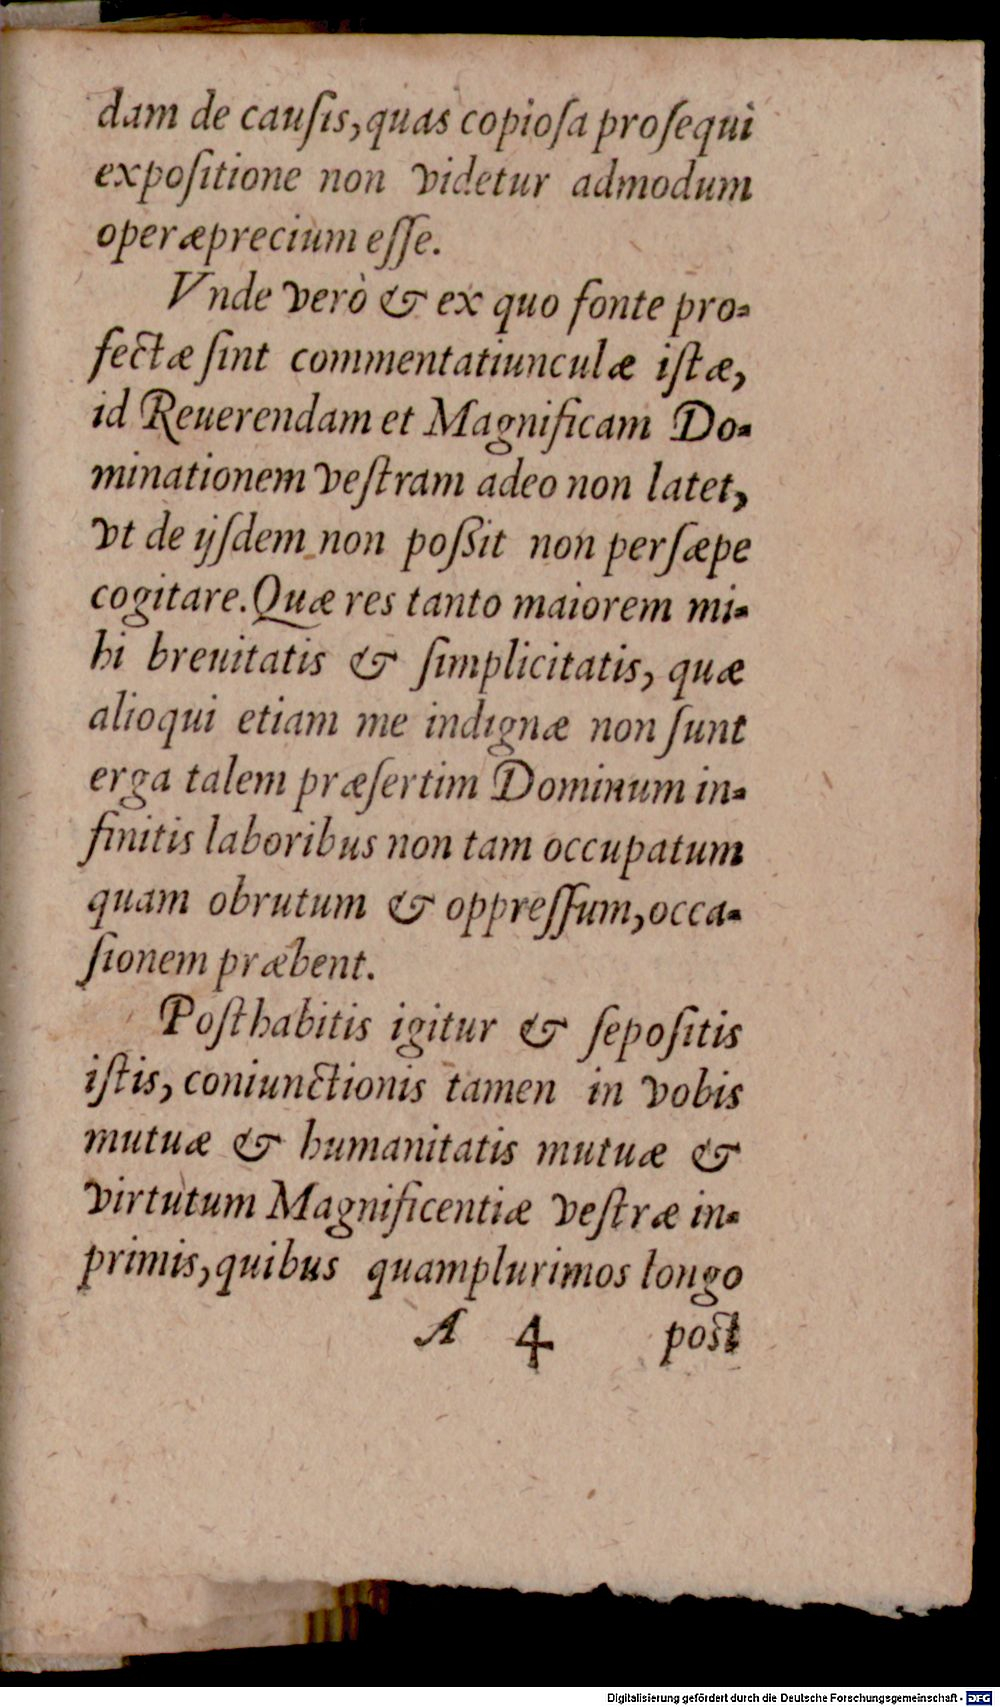 dam de cauſis, quas copioſa proſequi
expoſitione non videtur admodum
operæprecium eſſe.
Vnde verò & ex quo fonte pro-
fectæ ſint commentatiunculæ iſtæ,
id Reuerendam et Magnificam Do-
minationem veſtram adeo non latet,
vt de ijſdem non poßit non perſæpe
cogitare. Quæ res tanto maiorem mi-
hi breuitatis & ſimplicitatis, quæ
alioqui etiam me indignæ non ſunt
erga talem præſertim Dominum in-
finitis laboribus non tam occupatum
quam obrutum & oppreſſum, occa-
ſionem præbent.
Poſthabitis igitur & ſepoſitis
iſtis, coniunctionis tamen in vobis
mutuæ & humanitatis mutuæ &
virtutum Magnificentiæ veſtræ in-
primis, quibus quamplurimos longo
A 4 poſt
Digitalisierung gefördert durch die Deutsche Forschungsgemeinschaft - DFG